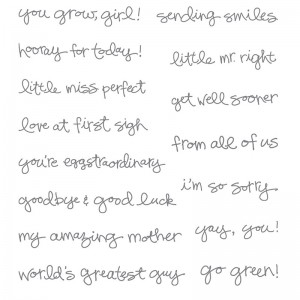 you grow, girl!
sending smiles
hooray for today!
little mr. right
little miss perfect
get well sooner
love at first sigh
from all of us
you're eggstraordinary
i'm so sorry
goodbye & good luck
my amazing mother
yay, you!
world's greatest guy
go green!